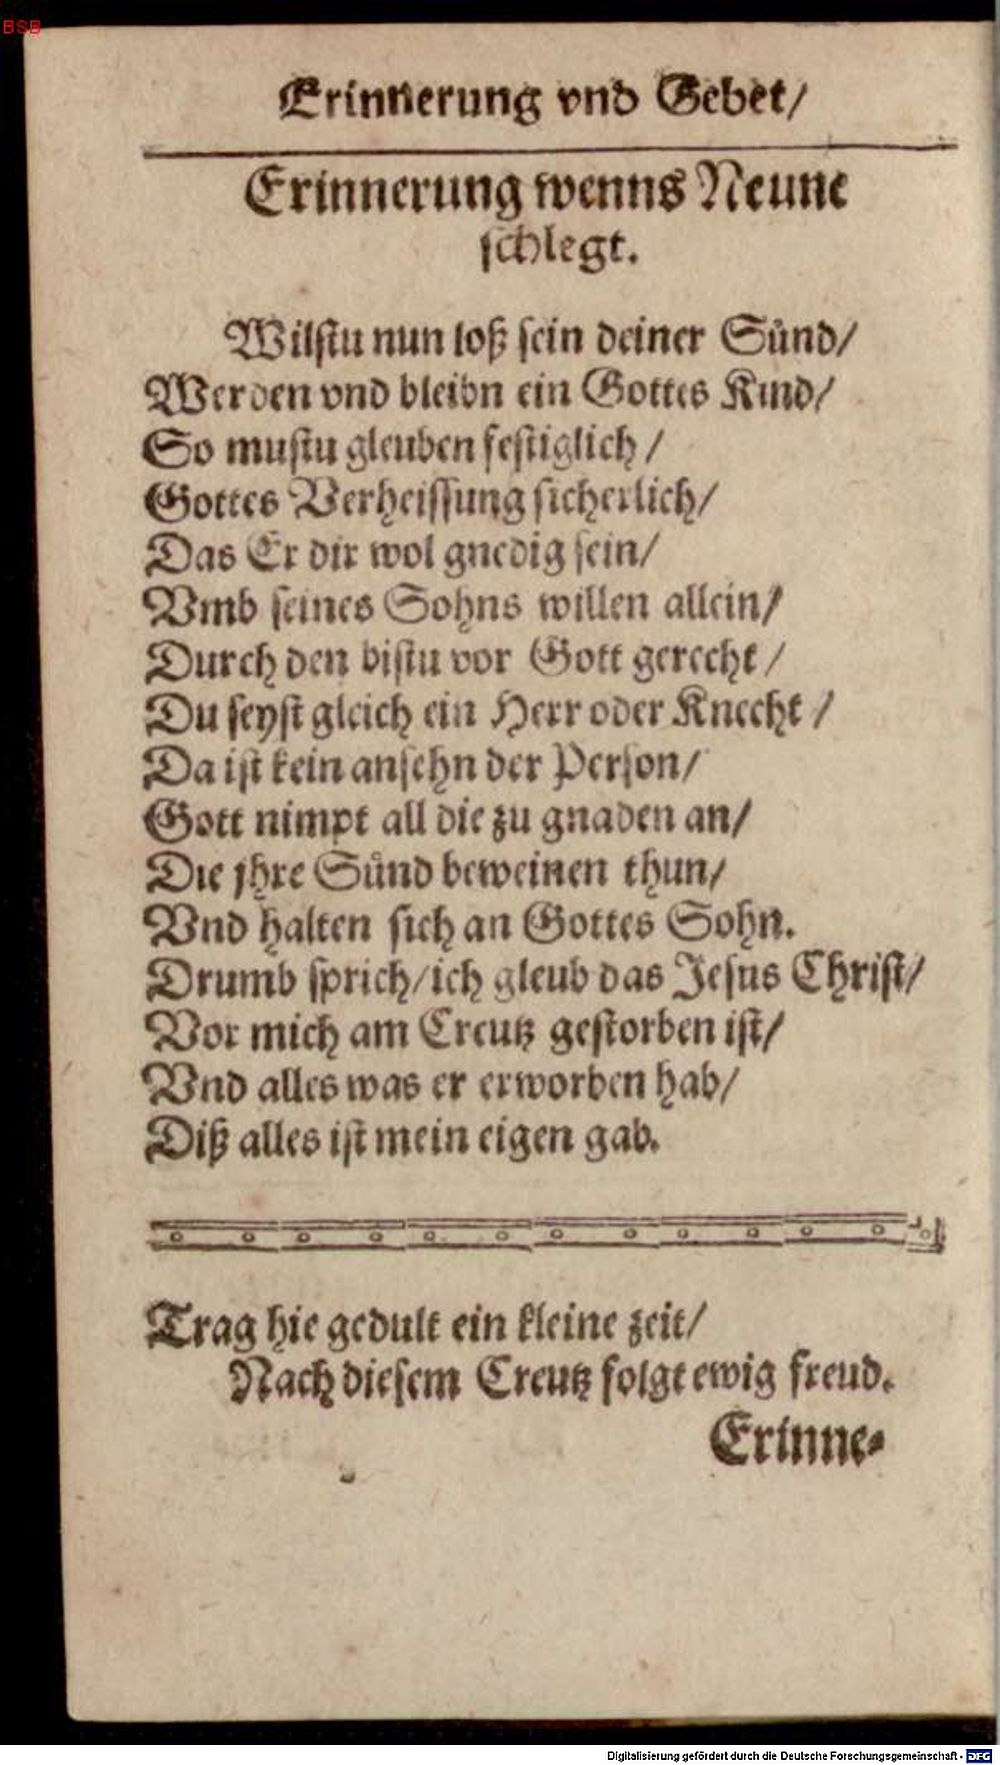 BSB
Erinnerung vnd Gebet/
Erinnerung wenns Neune
schlegt.
Wilstu nun loß sein deiner Sünd/
Werden vnd bleibn ein Gottes Kind/
So mustu gleuben festiglich /
Gottes Verheissung sicherlich/
Das Er dir wol gnedig sein/
Vmb seines Sohns willen allein/
Durch den bistu vor Gott gerecht /
Du seyst gleich ein Herr oder Knecht /
Da ist kein ansehn der Person/
Gott nimpt all die zu gnaden an/
Die jhre Sünd beweinen thun/
Vnd halten sich an Gottes Sohn.
Drumb sprich/ich gleub das Jesus Christ/
Vor mich am Creutz gestorben ist/
Vnd alles was er erworben hab/
Diß alles ist mein eigen gab.
Trag hie gedult ein kleine zeit/
Nach diesem Creutz folgt ewig freud.
Erinne-
Digitalisierung gefördert durch die Deutsche Forschungsgemeinschaft - DFG